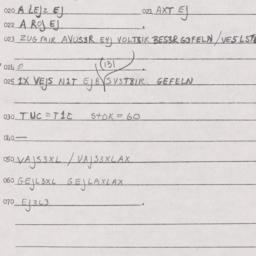 020 A LEJ2 EJ 021 AXT EJ
022 A ROJ EJ
023 ZUG MIR AVUSER EYJ VOLTBIK BESSR GOFELN / VESLSTE
024
(13)
025 IX VEJS NIT EJB SYSTBIK GEFELN
030 TUC = TIC STOK = 60
040 —
050 VAJS3XL / VAJS3XLAX
060 GEJL3XL GEJLAXLAX
070 EJ3L3